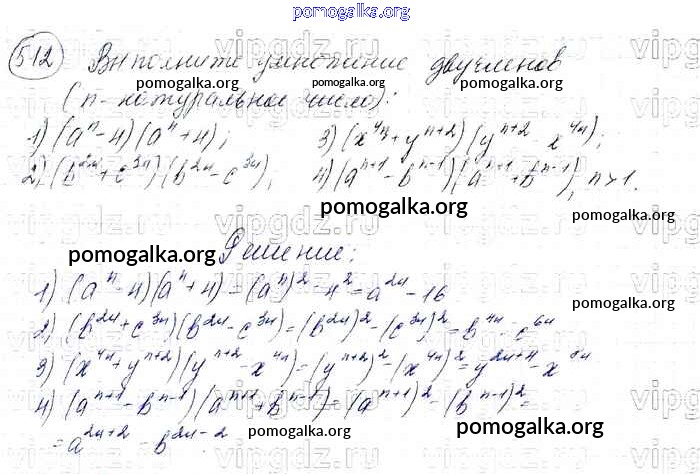 pomogalka.org
512 Выполните умножение двучленов
(n - натуральное число):
pomogalka.org pomogalka.org pomogalka.org
1) (aⁿ - 4)(aⁿ + 4); 3) (x⁴ⁿ + yⁿ⁺²)(yⁿ⁺² - x⁴ⁿ);
2) (b²ⁿ + c³ⁿ)(b²ⁿ - c³ⁿ); 4) (aⁿ⁺¹ - bⁿ⁻¹)(aⁿ⁺¹ + bⁿ⁻¹), n > 1.
pomogalka.org pomogalka.org
Решение:
pomogalka.org
1) (aⁿ - 4)(aⁿ + 4) = (aⁿ)² - 4² = a²ⁿ - 16
pomogalka.org
2) (b²ⁿ + c³ⁿ)(b²ⁿ - c³ⁿ) = (b²ⁿ)² - (c³ⁿ)² = b⁴ⁿ - c⁶ⁿ
3) (x⁴ⁿ + yⁿ⁺²)(yⁿ⁺² - x⁴ⁿ) = (yⁿ⁺²)² - (x⁴ⁿ)² = y²ⁿ⁺⁴ - x⁸ⁿ
4) (aⁿ⁺¹ - bⁿ⁻¹)(aⁿ⁺¹ + bⁿ⁻¹) = (aⁿ⁺¹)² - (bⁿ⁻¹)² =
= a²ⁿ⁺² - b²ⁿ⁻²
pomogalka.org pomogalka.org